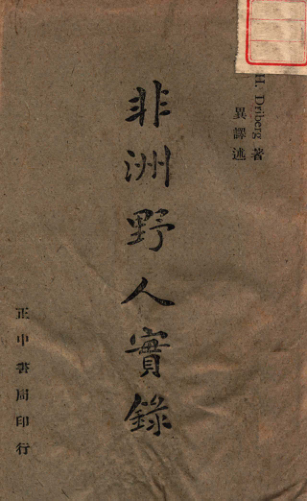 H. Driberg 著
異譯述
非洲野人實錄
正中書局印行